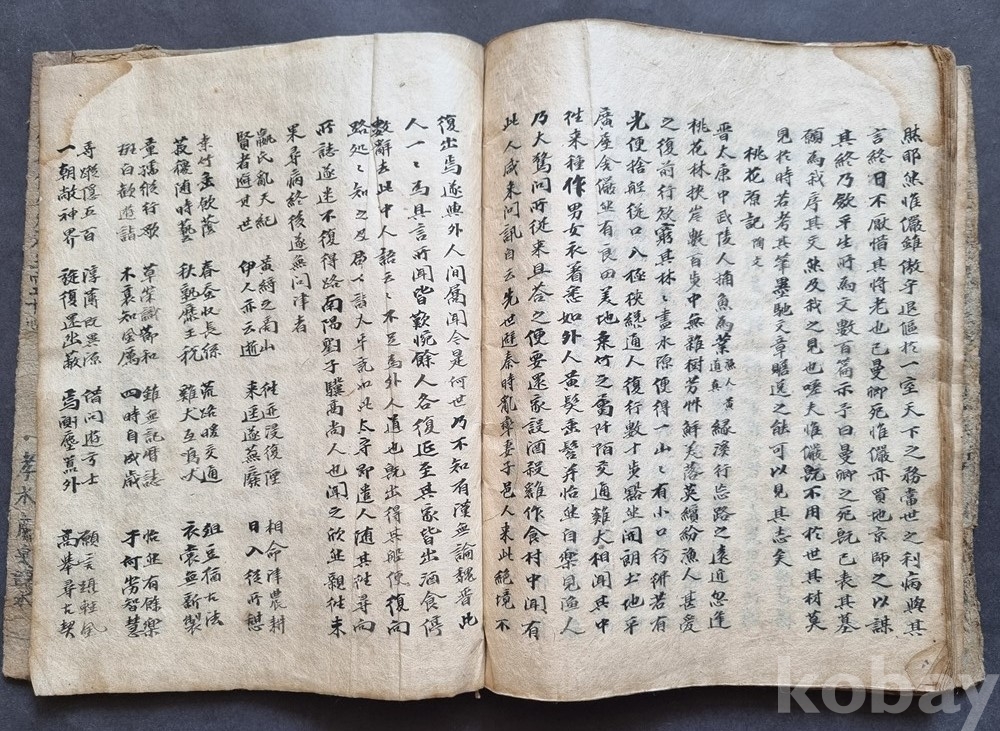 然惟儼雖傲乎退偃於一室天下之務當世之利病與其
言終日不厭惜其將老也已曼卿死惟儼亦買地京師之以謀
其終乃斂平生所為文數百篇示予曰曼卿之死既已表其墓
願為我序其文然及我之見也嗟夫惟儼既不用於世其材莫
見於時若考其筆墨馳文章贍逸之能可以見其志矣
桃花源記 陶文
晉太康中武陵人捕魚為業漁人黃道真緣溪行忘路之遠近忽逢
桃花林挾岸數百步中無雜樹芳艸鮮美落英繽紛漁人甚愛
之復前行欲窮其林〻盡水原便得一山〻有小口彷彿若有
光便捨舡從口入極狹纔通人復行數十步豁然開朗土地平
廣屋舍儼然有良田美地桑竹之屬阡陌交通雞犬相聞其中
往來種作男女衣著悉如外人黃髮垂髫并怡然自樂見漁人
乃大驚問所從來具荅之便要還家設酒殺雞作食村中聞有
此人咸來問訊自云先世避秦時亂率妻子邑人來此絕境不
復出焉遂與外人間屬問今是何世乃不知有漢無論魏晉此
人一〻為具言所聞皆歎惋餘人各復延至其家皆出酒食停
數日辭去此中人語云〻不足為外人道也既出得其舡便復向
路処〻知之及郡〻詣太守說如此太守即遣人随其往尋向
所誌遂迷不復得路南陽劉子驥高尚人也聞之欣然親往未
果尋病終後遂無問津者
嬴氏亂天紀 黃綺之商山 往迹浸復湮 相命肆農耕
賢者避其世 伊人亦云逝 来逕遂蕪廢 日入從所憩
桑竹垂餘蔭 春蚕收長絲 荒路曖交通 俎豆猶古法
菽稷随時藝 秋熟靡王稅 雞犬互鳴吠 衣裳無新製
童孺縱行歌 草榮識節和 雖無記曆誌 怡然有餘樂
班白歡遊詣 木衰知風厲 四時自成歲 于何勞智慧
奇蹤隱五百 淳薄既異源 借問遊方士 願言躡輕風
一朝敞神界 旋復還幽蔽 焉測塵囂外 高舉尋吾契
kobay